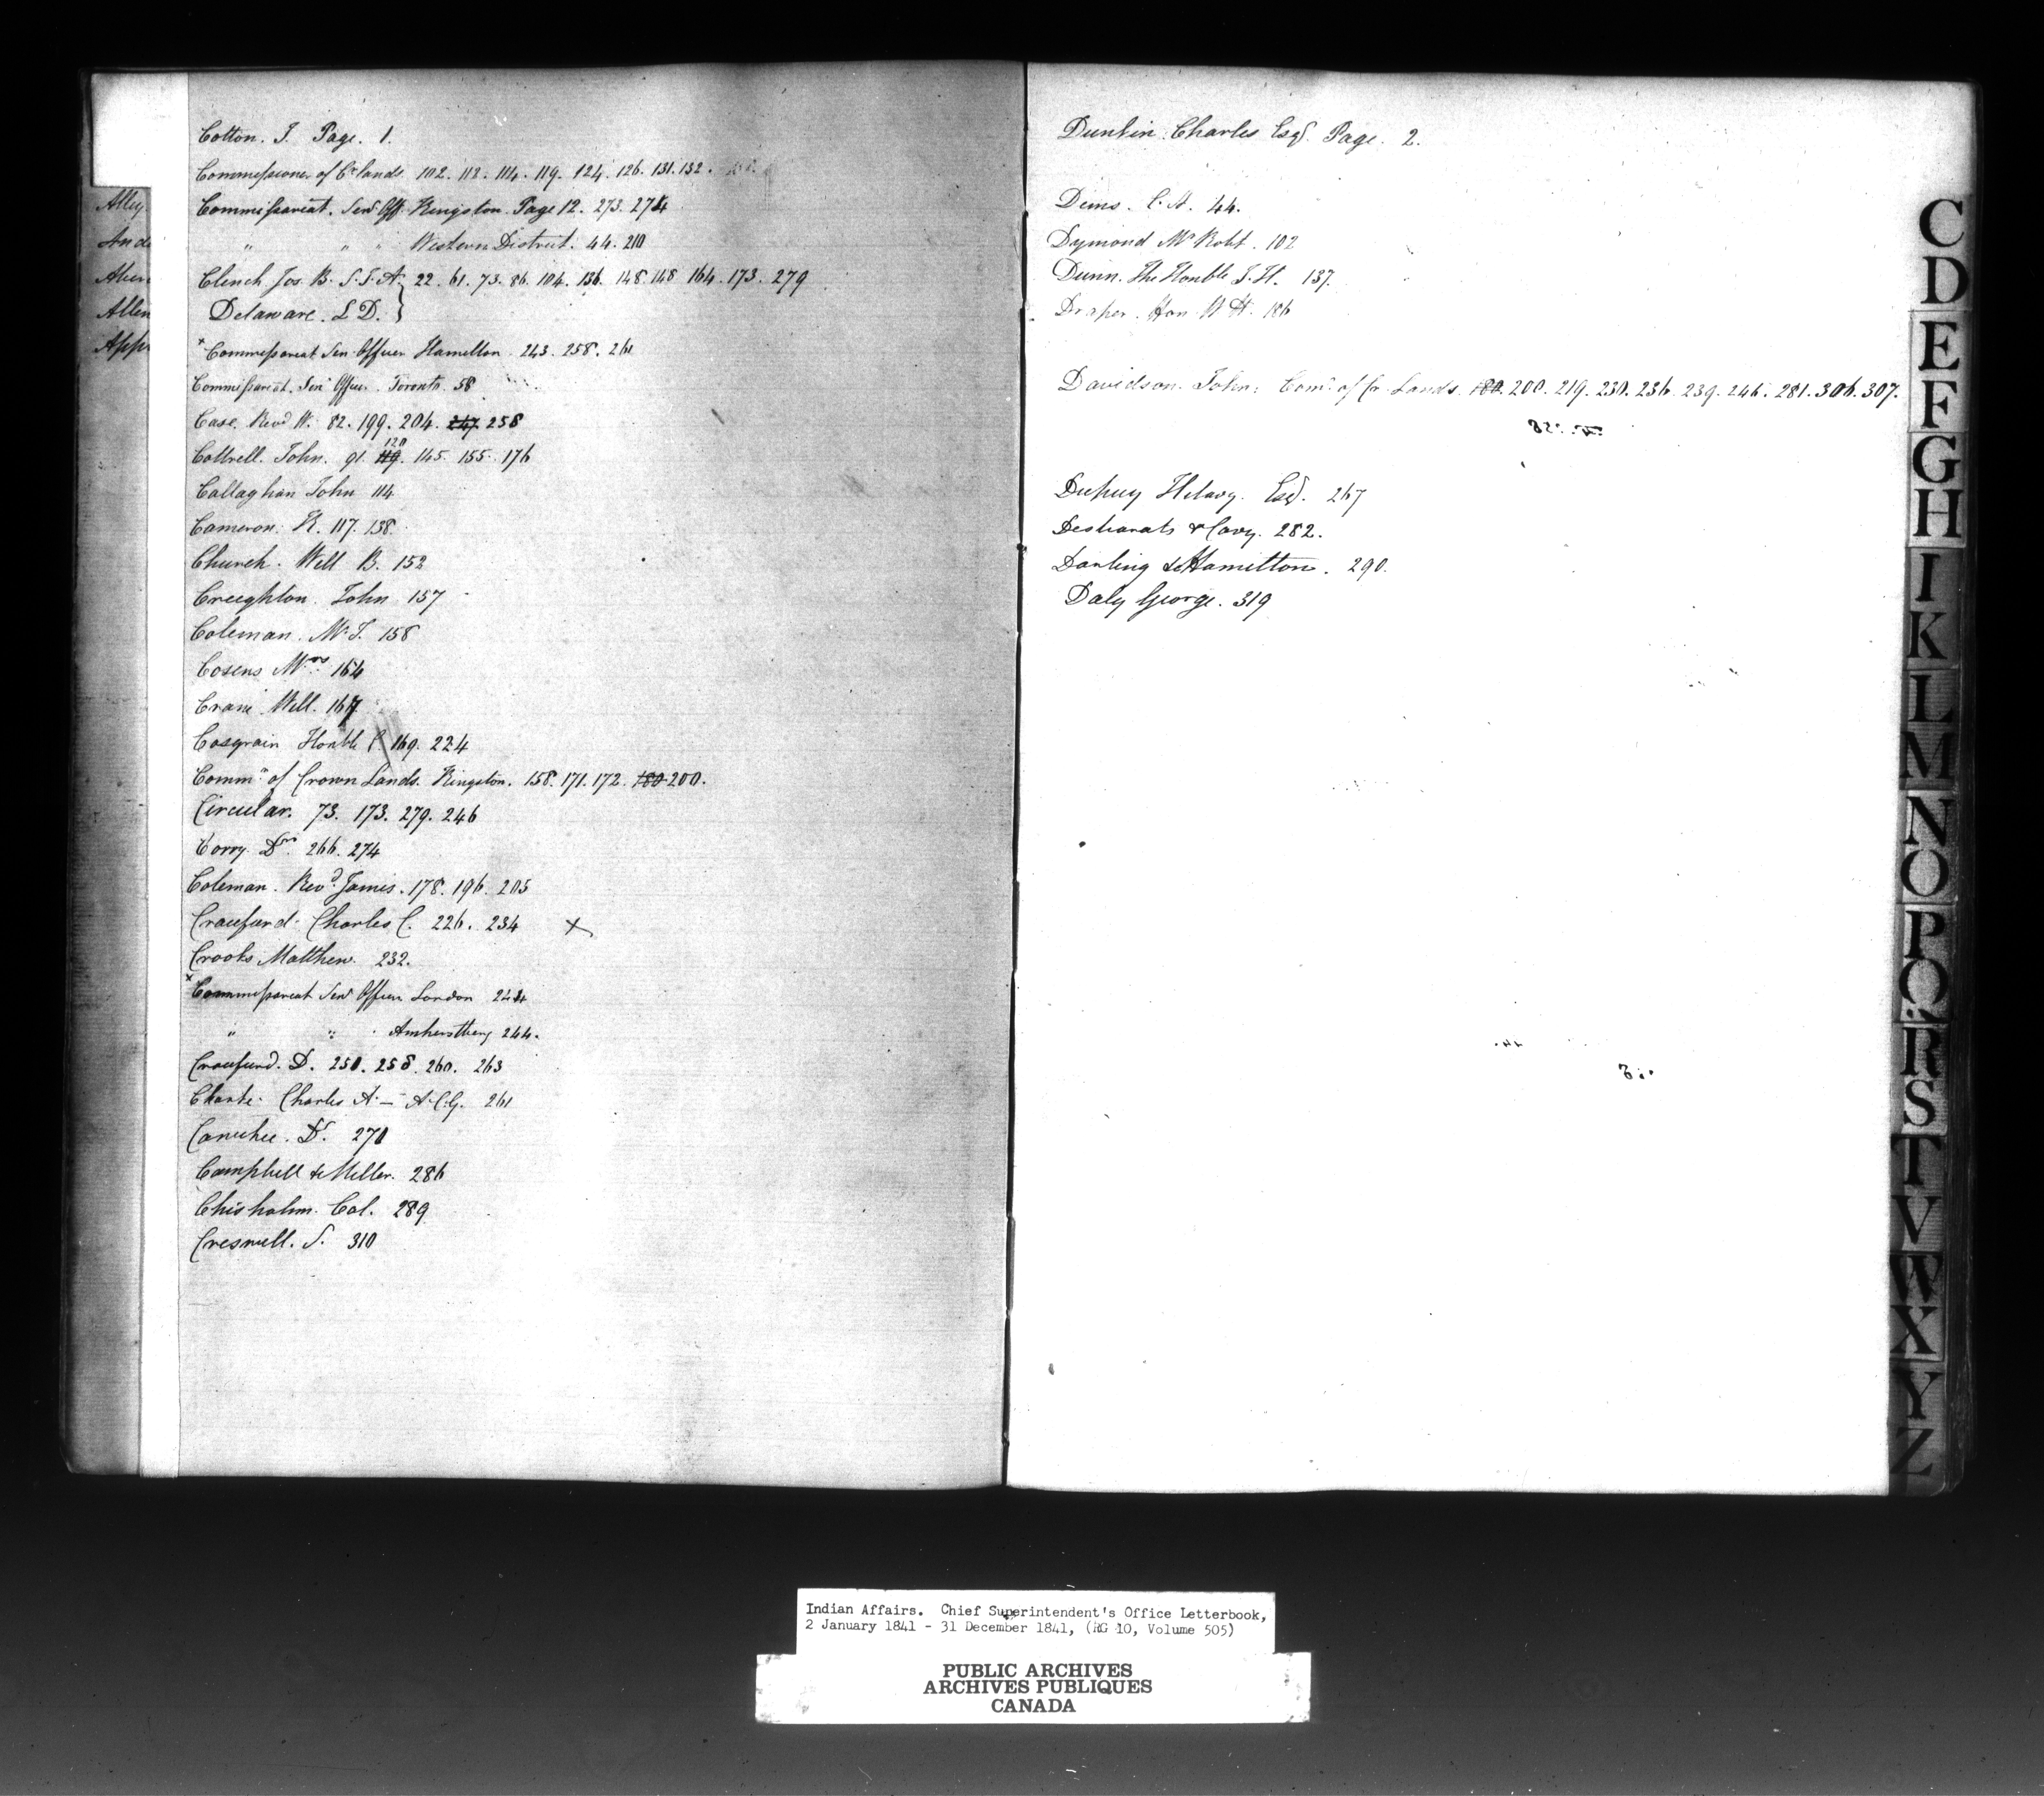 Alley
Ande
Aber
Allen
Appe
Cotton. J. Page. 1.
Commissioner of Cr. lands. 102. 112. 114. 119. 124. 126. 131. 132.
Commissariat. Senr Offr. Kingston. Page 12. 273. 274
" " " Western District. 44. 210
Clench Jos. B. S.I.A. 22. 61. 73. 86. 104. 136. 148. 148 164. 173. 279
Delaware. L D. }
x Commissariat Sen Officer Hamilton. 243. 258. 261
Commissariat. Senr Officer. Toronto. 58
Case, Revd W. 82. 199. 204. 247. 258
Cottrell. John. 91. 119. 120 145. 155. 176
Callaghan John 114
Cameron. K. 117. 138.
Church. Will B. 152
Creighton. John 157
Coleman. Mr J. 158
Cosens Mrs 164
Crane Will. 167
Casgrain Honble C. 169. 224
Commr of Crown Lands. Kingston. 158. 171. 172. 180 200.
Circular. 73. 173. 279. 246
Corry. Dr. 266. 274
Coleman. Revd James. 178. 196. 205
Craufurd. Charles C. 226. 234 x
Crooks Matthew. 232.
x Commissariat Senr Officer London 244
" " Amherstburg 244.
Craufurd. D. 250. 258. 260. 263
Charles A. — A.C.G. 261
Dr. 270
Campbell & Miller. 286
Chisholm. Col. 289
Creswell. S. 310
Dunkin Charles Esqr. Page. 2.
C. A. 44.
Dymond Mr Robt. 102
Dunn. The Honble J. H. 137.
Draper. Hon W H. 186
Davidson. John. Comr. of Cr Lands. 180. 200. 219. 230. 236. 239. 246. 281. 306. 307.
Dupuy Hilary. Esqr. 267
Desbarats & Cary. 282.
Darling & Hamilton. 290.
Daly George. 319
C
D
E
F
G
H
I
K
L
M
N
O
P
Q
R
S
T
V
W
X
Y
Z
Indian Affairs. Chief Superintendent's Office Letterbook,
2 January 1841 - 31 December 1841, (RG 10, Volume 505)
PUBLIC ARCHIVES
ARCHIVES PUBLIQUES
CANADA